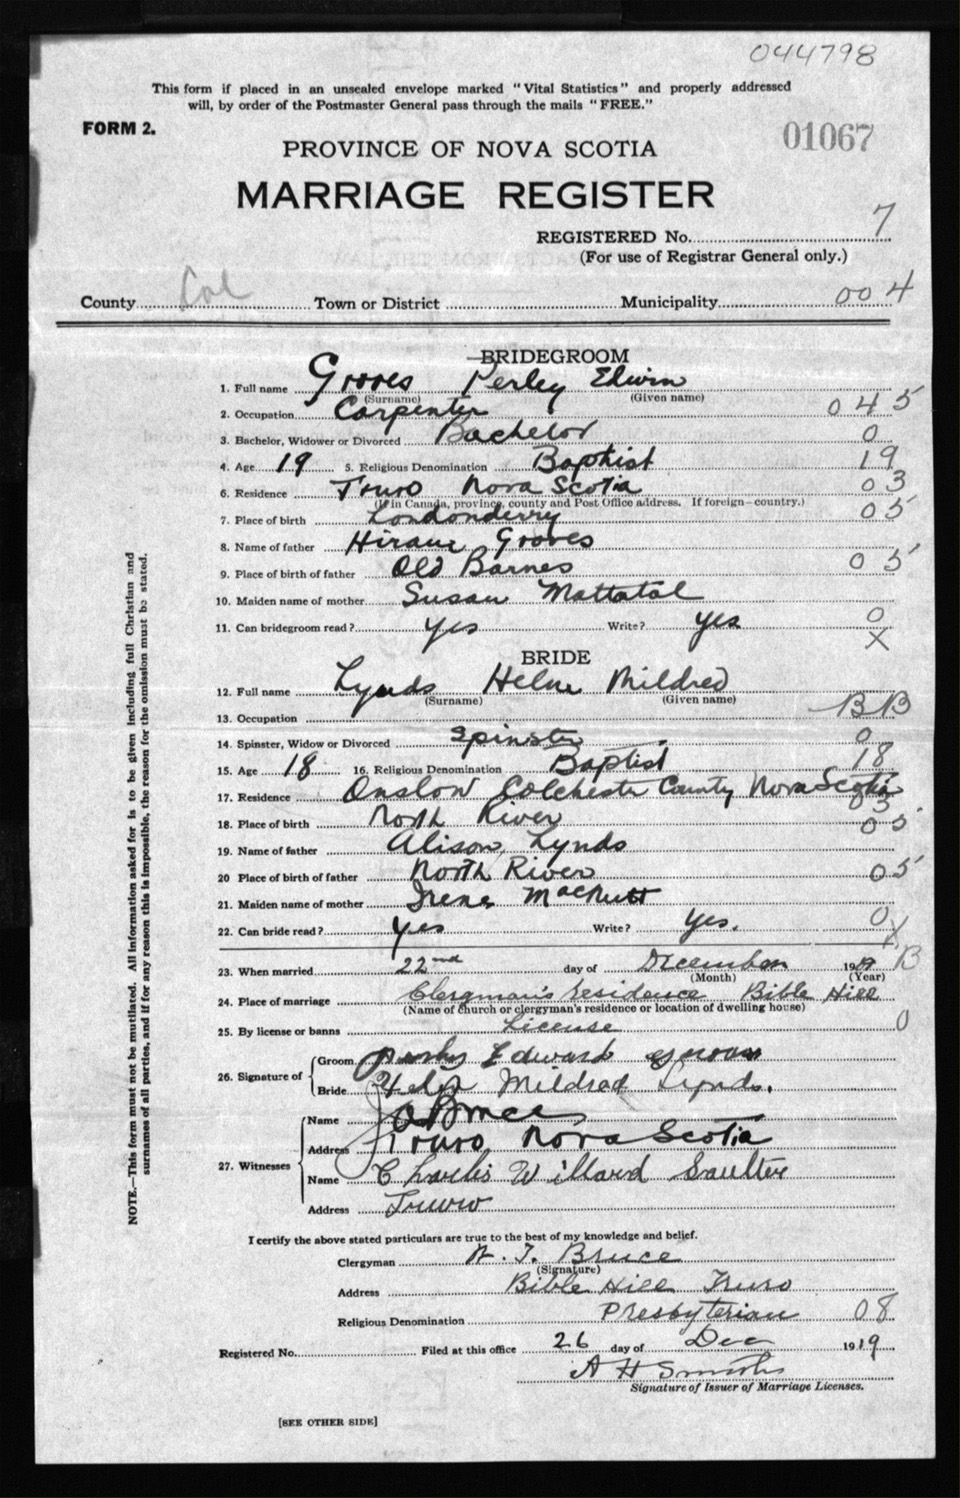 044798
This form if placed in an unsealed envelope marked "Vital Statistics" and properly addressed
will, by order of the Postmaster General pass through the mails "FREE."
FORM 2.
01067
PROVINCE OF NOVA SCOTIA
MARRIAGE REGISTER
REGISTERED No. 7
(For use of Registrar General only.)
County Col Town or District Municipality 004
BRIDEGROOM
1. Full name Groves Perley Edwin
(Surname) (Given name)
2. Occupation Carpenter 045
3. Bachelor, Widower or Divorced Bachelor 0
4. Age 19 5. Religious Denomination Baptist 19
6. Residence Truro Nova Scotia 03
(If in Canada, province, county and Post Office address. If foreign—country.)
7. Place of birth Londonderry 05
8. Name of father Hiram Groves
9. Place of birth of father Old Barnes 05
10. Maiden name of mother Susan Mattatal
11. Can bridegroom read? yes Write? yes 0
X
BRIDE
12. Full name Lynds Helen Mildred
(Surname) (Given name)
13. Occupation BB
14. Spinster, Widow or Divorced Spinster 0
15. Age 18 16. Religious Denomination Baptist 18
17. Residence Onslow Colchester County Nova Scotia
03
18. Place of birth North River 05
19. Name of father Alison Lynds
20 Place of birth of father North River 05
21. Maiden name of mother Irene MacNutt
22. Can bride read? yes Write? yes. 0
X
23. When married 22nd day of December 1919 B
(Month) (Year)
24. Place of marriage Clergman's residence Bible Hill
(Name of church or clergyman's residence or location of dwelling house)
25. By license or banns License 0
26. Signature of Groom Edward
Bride Mildred Lynds.
27. Witnesses Name Bruce
Address Truro Nova Scotia
Name Charlis Willard Saulter
Address Truro
I certify the above stated particulars are true to the best of my knowledge and belief.
Clergyman Bruce
(Signature)
Address Bible Hill Truro
Religious Denomination Presbyterian 08
Registered No. Filed at this office 26 day of Dec 1919
A H Smith
Signature of Issuer of Marriage Licenses.
[SEE OTHER SIDE]
NOTE.—This form must not be mutilated. All information asked for is to be given including full Christian and
surnames of all parties, and if for any reason this is impossible, the reason for the omission must be stated.